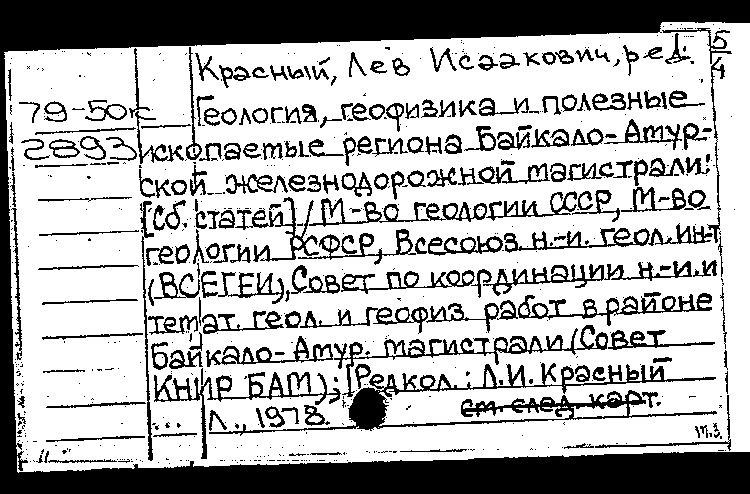 Красный, Лев Исаакович, ред. 5/4
79-50к Геология, геофизика и полезные
2893 ископаемые региона Байкало-Амур-
ской железнодорожной магистрали:
[Сб. статей] / М-во геологии СССР, М-во
геологии РСФСР, Всесоюз. н.-и. геол. ин-т
(ВСЕГЕИ), Совет по координации н.-и. и
темат. геол. и геофиз. работ в районе
Байкало-Амур. магистрали (Совет
КНИР БАМ); [Редкол.: Л.И. Красный
... Л., 1978. см. след. карт.
т.з.